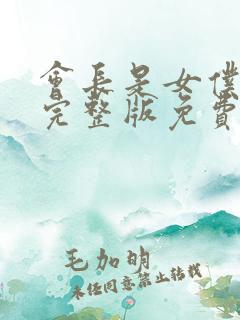 會長是女僕
完整版免費
毛加明
未经同意禁止转载